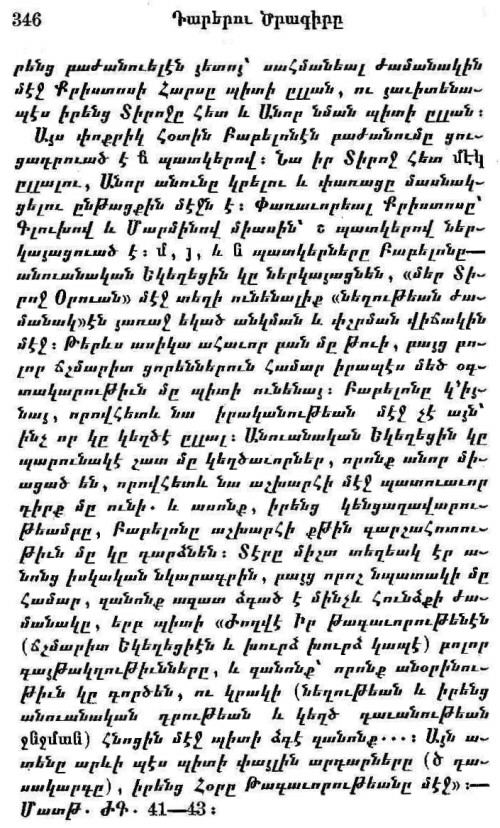 346 Դարերու Ծրագիրը
րենց բաժանուելէն յետոյ՝ սահմանեալ ժամանակին
մէջ Քրիստոսի Հարսը պիտի ըլլան, ու յաւիտենա-
պէս իրենց Տիրոջը հետ և Անոր նման պիտի ըլլան։
Այս փոքրիկ հօտին Բաբելոնէն բաժանումը ցու-
ցադրուած է ն պատկերով։ Նա իր Տիրոջ հետ մէկ
ըլլալու, Անոր անունը կրելու և փառացը մասնակ-
ցելու ընթացքին մէջն է։ Փառաւորեալ Քրիստոսը՝
Գլուխով և Մարմինով միասին՝ շ պատկերով ներ-
կայացուած է։ մ, յ, և ն պատկերները Բաբելոնը—
անուանական Եկեղեցին կը ներկայացնեն, «մեր Տի-
րոջ Օրուան» մէջ տեղի ունենալիք «նեղութեան ժա-
մանակ»էն յառաջ եկած անկման և փշրման վիճակին
մէջ։ Թերևս ասիկա ահաւոր բան մը թուի, բայց բո-
լոր ճշմարիտ ցորեններուն համար իրապէս մեծ օգ-
տակարութիւն մը պիտի ունենայ։ Բաբելոնը կ՚իյ-
նայ, որովհետև նա իրականութեան մէջ չէ այն՝
ինչ որ կը կեղծէ ըլլալ։ Անուանական Եկեղեցին կը
պարունակէ շատ մը կեղծաւորներ, որոնք անոր մի-
ացած են, որովհետև նա աշխարհի մէջ պատուաւոր
դիրք մը ունի. և ասոնք, իրենց կենցաղավարու-
թեամբը, Բաբելոնը աշխարհի քթին գարշահոտու-
թիւն մը կը դարձնեն։ Տէրը միշտ տեղեակ էր ա-
նոնց իսկական նկարագրին, բայց որոշ նպատակի մը
համար, զանոնք ազատ ձգած է մինչև Հունձքի ժա-
մանակը, երբ պիտի «Ժողվէ Իր թագաւորութենէն
(ճշմարիտ Եկեղեցիէն և խուրձ խուրձ կապէ) բոլոր
գայթակղութիւնները, և զանոնք՝ որոնք անօրինու-
թիւն կը գործեն, ու կրակի (նեղութեան և իրենց
անուանական դրութեան և կեղծ դաւանութեան
ջնջման) հնոցին մէջ պիտի ձգէ զանոնք....։ Այն ա-
տենը արևի պէս պիտի փայլին արդարները (ծ դա-
սակարգը), իրենց Հօրը Թագաւորութեանը մէջ»։—
Մատթ. ԺԳ. 41—43։